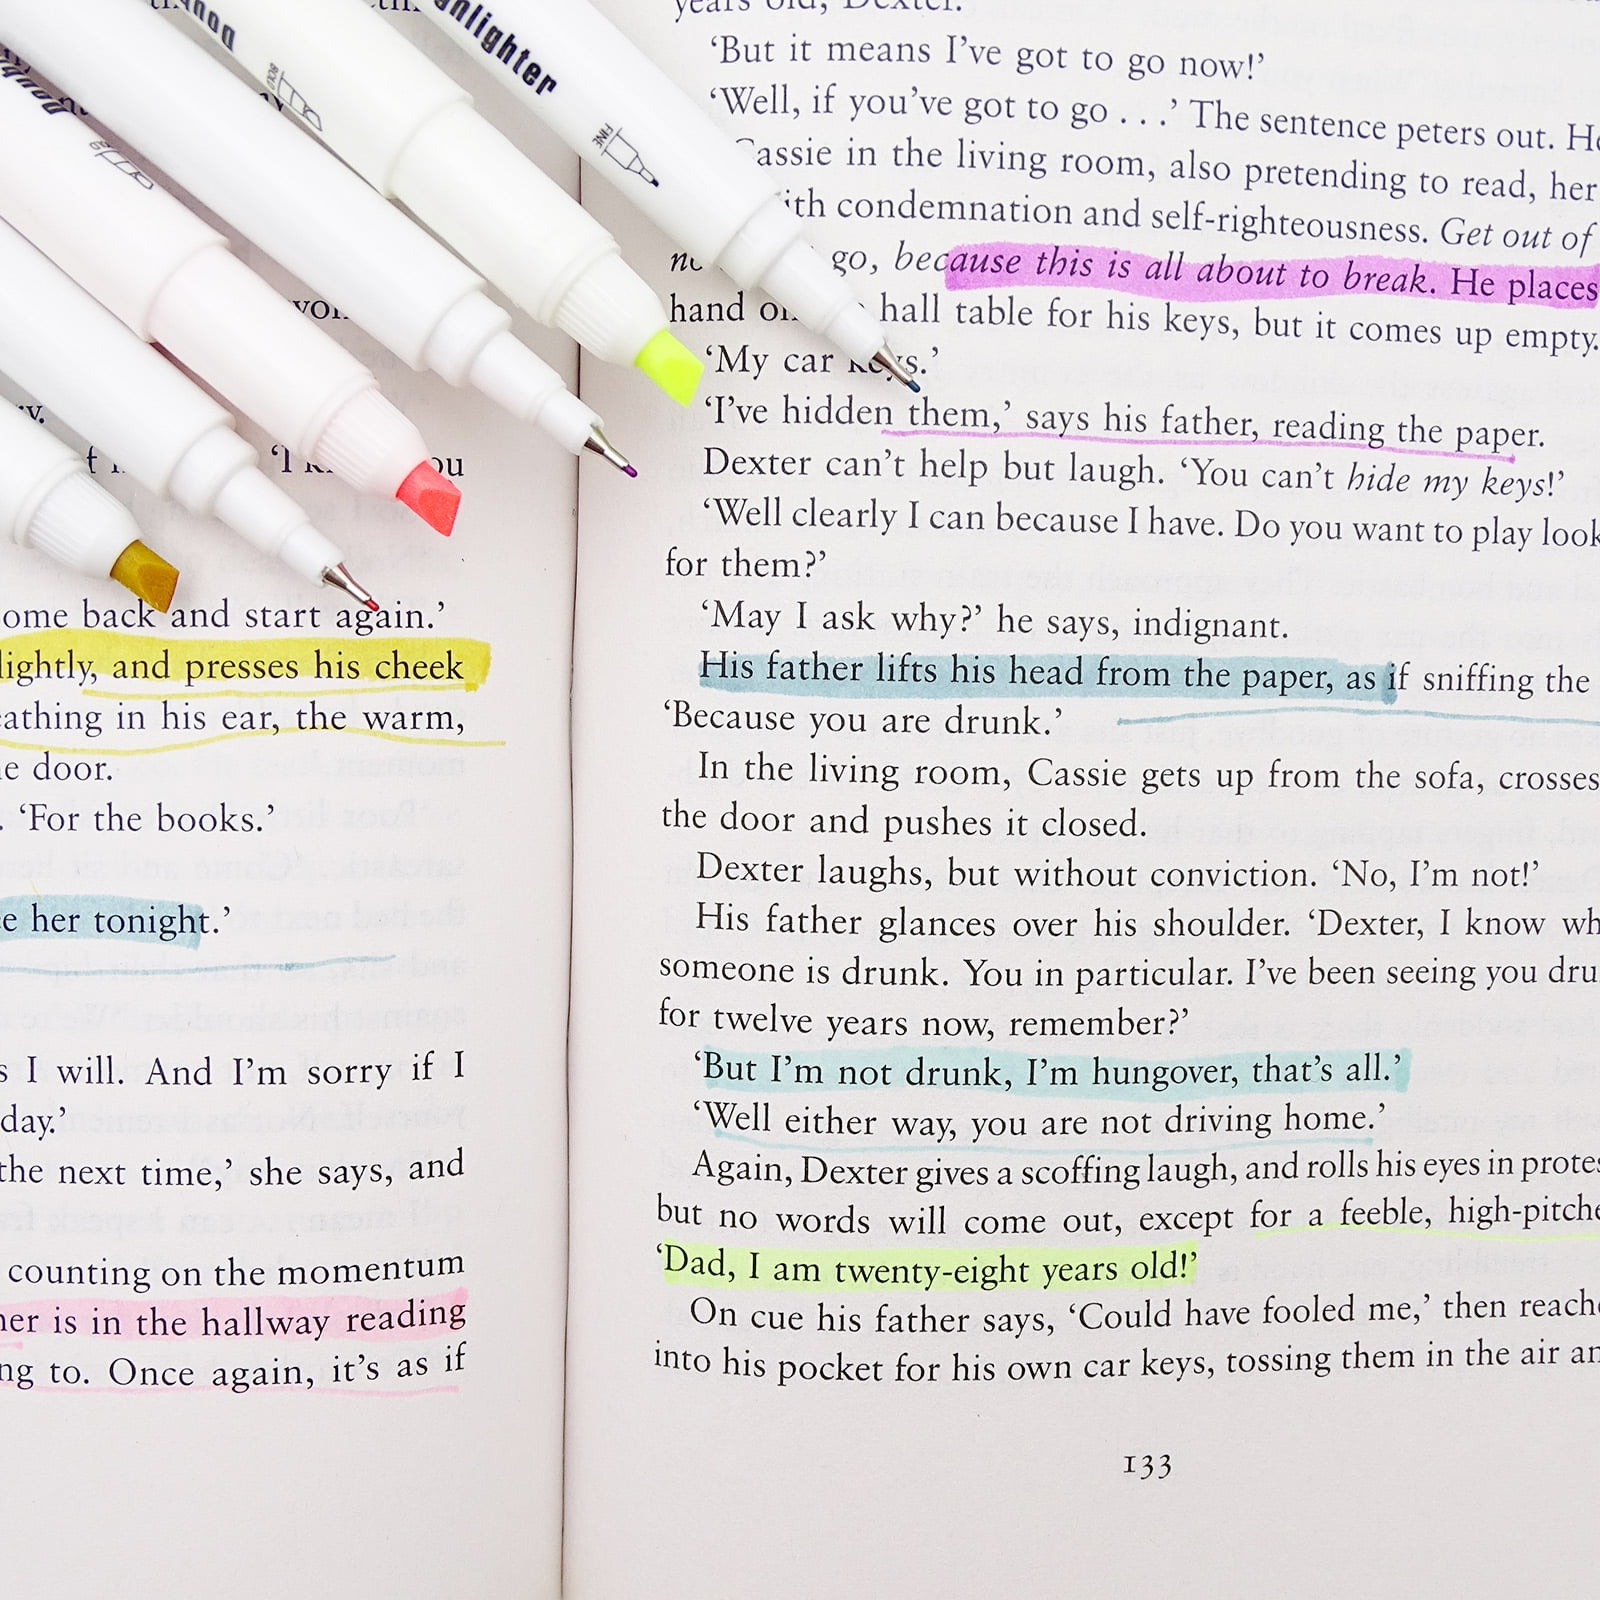 anlighter
FINE
BOLD
ome back and start again.’
lightly, and presses his cheek
eathing in his ear, the warm,
e door.
. ‘For the books.’
e her tonight.’
s I will. And I’m sorry if I
day.’
the next time,’ she says, and
counting on the momentum
her is in the hallway reading
ng to. Once again, it’s as if
years old, Dexter.
‘But it means I’ve got to go now!’
‘Well, if you’ve got to go . . .’ The sentence peters out. He
Cassie in the living room, also pretending to read, her
ith condemnation and self-righteousness. Get out of
go, because this is all about to break. He places
hand hall table for his keys, but it comes up empty.
‘My car keys.’
‘I’ve hidden them,’ says his father, reading the paper.
Dexter can’t help but laugh. ‘You can’t hide my keys!’
‘Well clearly I can because I have. Do you want to play look
for them?’
‘May I ask why?’ he says, indignant.
His father lifts his head from the paper, as if sniffing the
‘Because you are drunk.’
In the living room, Cassie gets up from the sofa, crosses
the door and pushes it closed.
Dexter laughs, but without conviction. ‘No, I’m not!’
His father glances over his shoulder. ‘Dexter, I know wh
someone is drunk. You in particular. I’ve been seeing you dru
for twelve years now, remember?’
‘But I’m not drunk, I’m hungover, that’s all.’
‘Well either way, you are not driving home.’
Again, Dexter gives a scoffing laugh, and rolls his eyes in protes
but no words will come out, except for a feeble, high-pitche
‘Dad, I am twenty-eight years old!’
On cue his father says, ‘Could have fooled me,’ then reache
into his pocket for his own car keys, tossing them in the air an
133